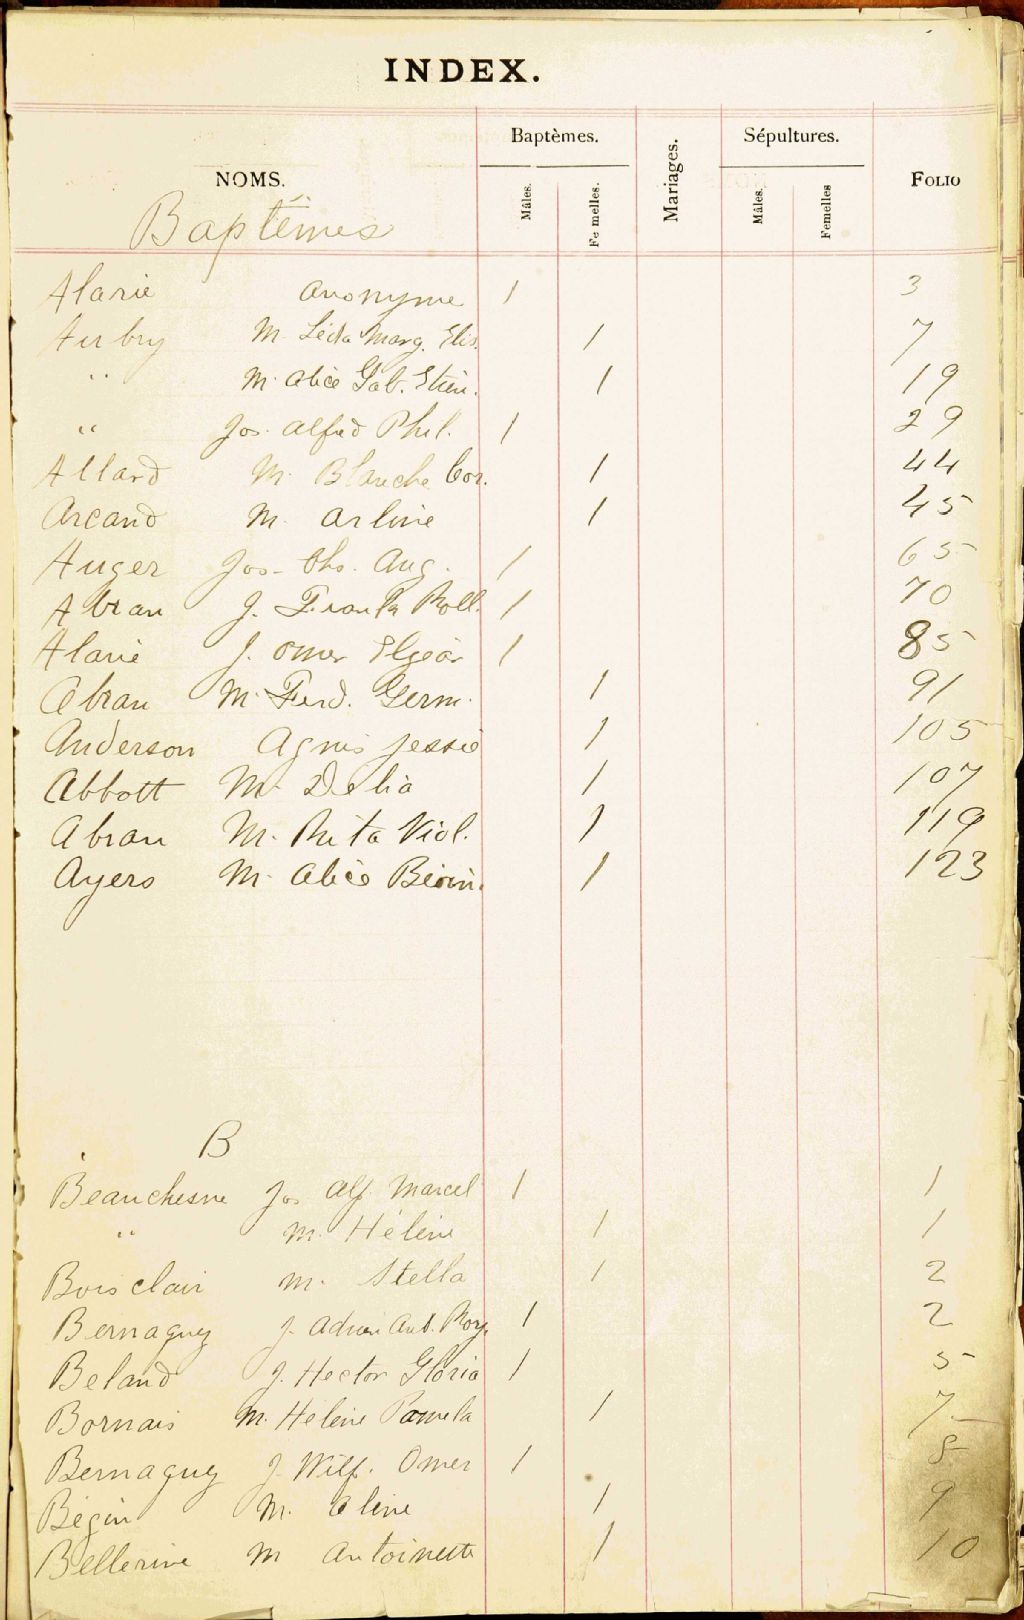 INDEX.
Baptèmes. Mariages. Sépultures.
NOMS. Mâles. Femelles. Mâles. Femelles FOLIO
Baptêmes
Alarie anonyme 1 3
Aubry M. Léda Marg. Elis. 1 7
" M. Alice Gab. 1 19
" Jos. Alfred Phil. 1 29
Allard M. Blanche Cor. 1 44
Arcand M. Arline 1 45
Auger Jos. Chs. Aug. 1 65
Abran J. Frank Roll. 1 70
Alarie J. Omer Elzéar 1 85
Abran M. Ferd. Germ. 1 91
Anderson Agnes Jessie 1 105
Abbott M. Delia 1 107
Abran M. Rita Viol. 1 119
Ayers M. Alice 1 123
B
Beauchesne Jos Alf. Marcel 1 1
" M. Hélène 1 1
Boisclair M. Stella 1 2
Bernaquez J. Adrien Ant. 1 2
Beland J. Hector Gloria 1 5
Bornais M. Helène Pamela 1 7
Bernaquez J. Wilf. Omer 1 8
Bégin M. Aline 1 9
Bellerive M Antoinette 1 10